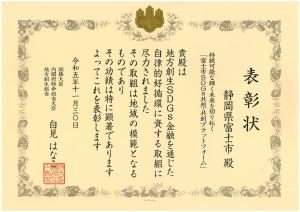 表彰状
静岡県富士市 殿
持続可能な輝く未来を切り拓く
「富士市SDGs共想・共創プラットフォーム」
貴殿は
地方創生SDGs金融を通じた
自律的好循環に資する取組に
尽力されました
その取組は地域の模範となる
ものであり
その功績は特に顕著であります
よってこれを表彰します
令和五年十一月三〇日
国務大臣
内閣府特命担当大臣
地方創生担当
自見はなこ